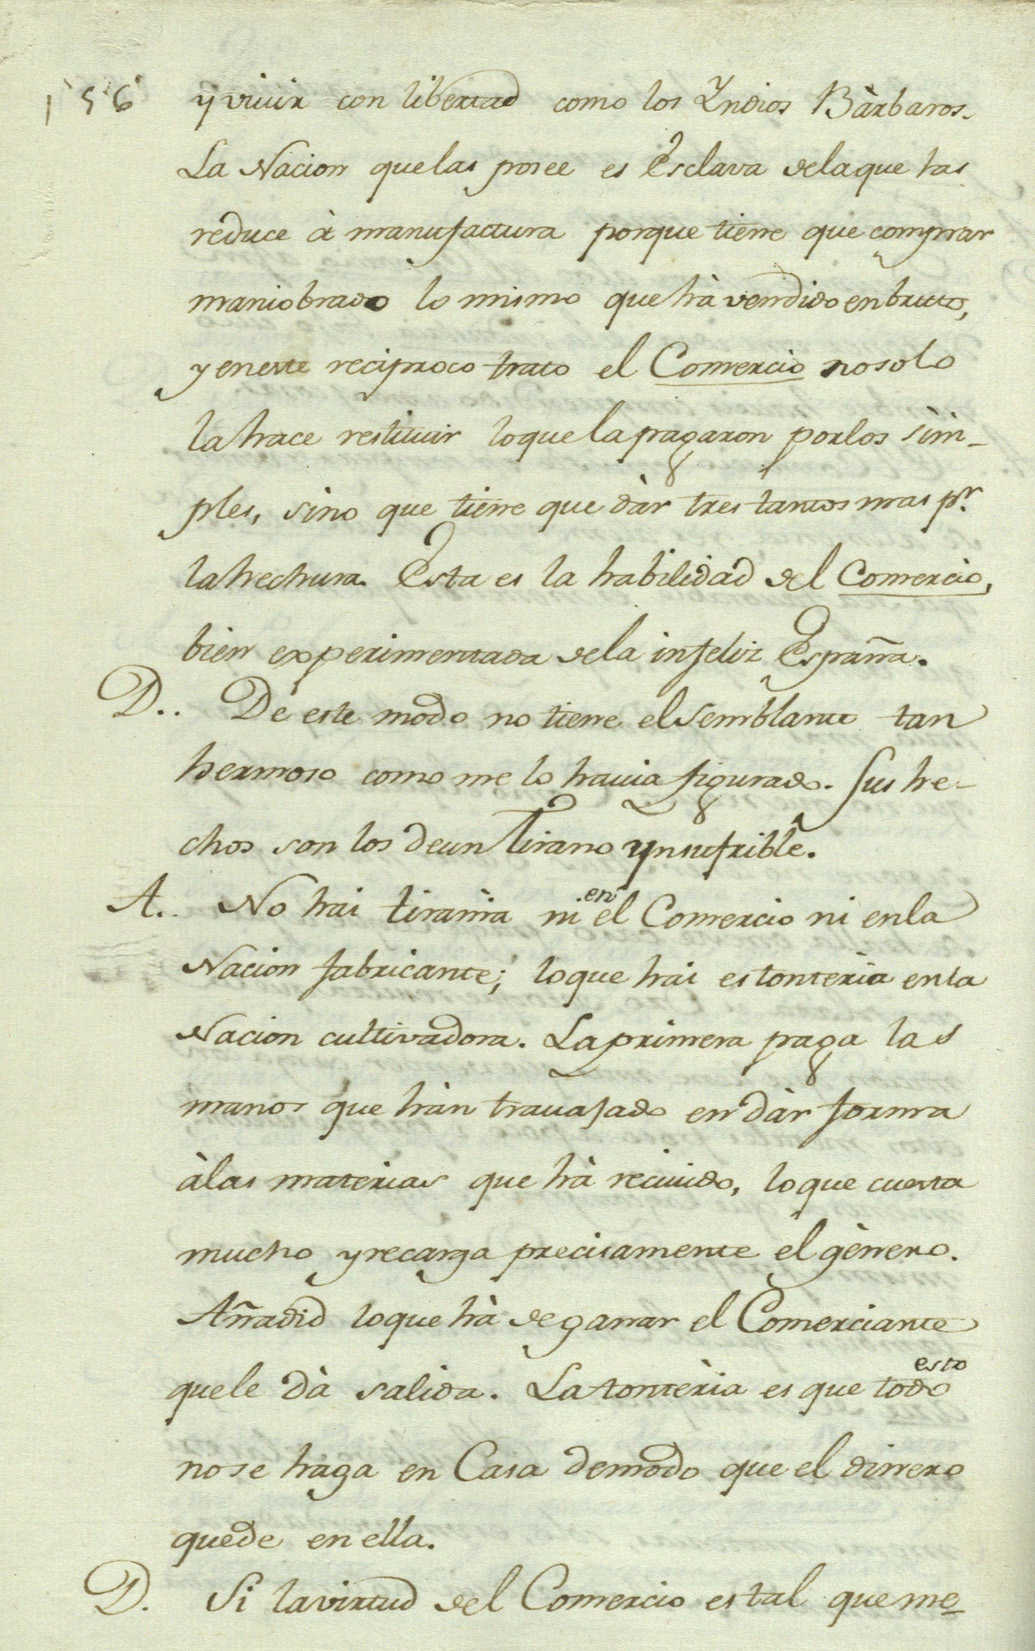 156 y vivir con libertad como los Yndios Bàrbaros.
La Nacion que las posee es Esclava de la que has
reduce à manufactura porque tiene que comprar
maniobrado lo mismo que hà vendido en bruto,
y en este reciproco trato el Comercio no solo
la hace restituir lo que la pagaron por los sim-
ples, sino que tiene que dàr tres tantos mas pr.
la hechura. Esta es la habilidad del Comercio,
bien experimentada de la infeliz España.
D.. De este modo no tiene el Semblante tan
hermoso como me lo havia figurado. Sus he-
chos son los de un Tirano ynsufrible.
A.. No hai tirania ni en el Comercio ni en la
Nacion fabricante; lo que hai es tonteria en la
Nacion cultivadora. La primera paga las
manos que hàn travajado en dàr forma
à las materias que hà recivido, lo que cuesta
mucho y recarga precisamente el gènero.
Añadid lo que hà de ganar el Comerciante
que le dà salida. La tonterìa es que todo esto
no se haga en Casa de modo que el dinero
quede en ella.
D. Si la virtud del Comercio es tal que me-